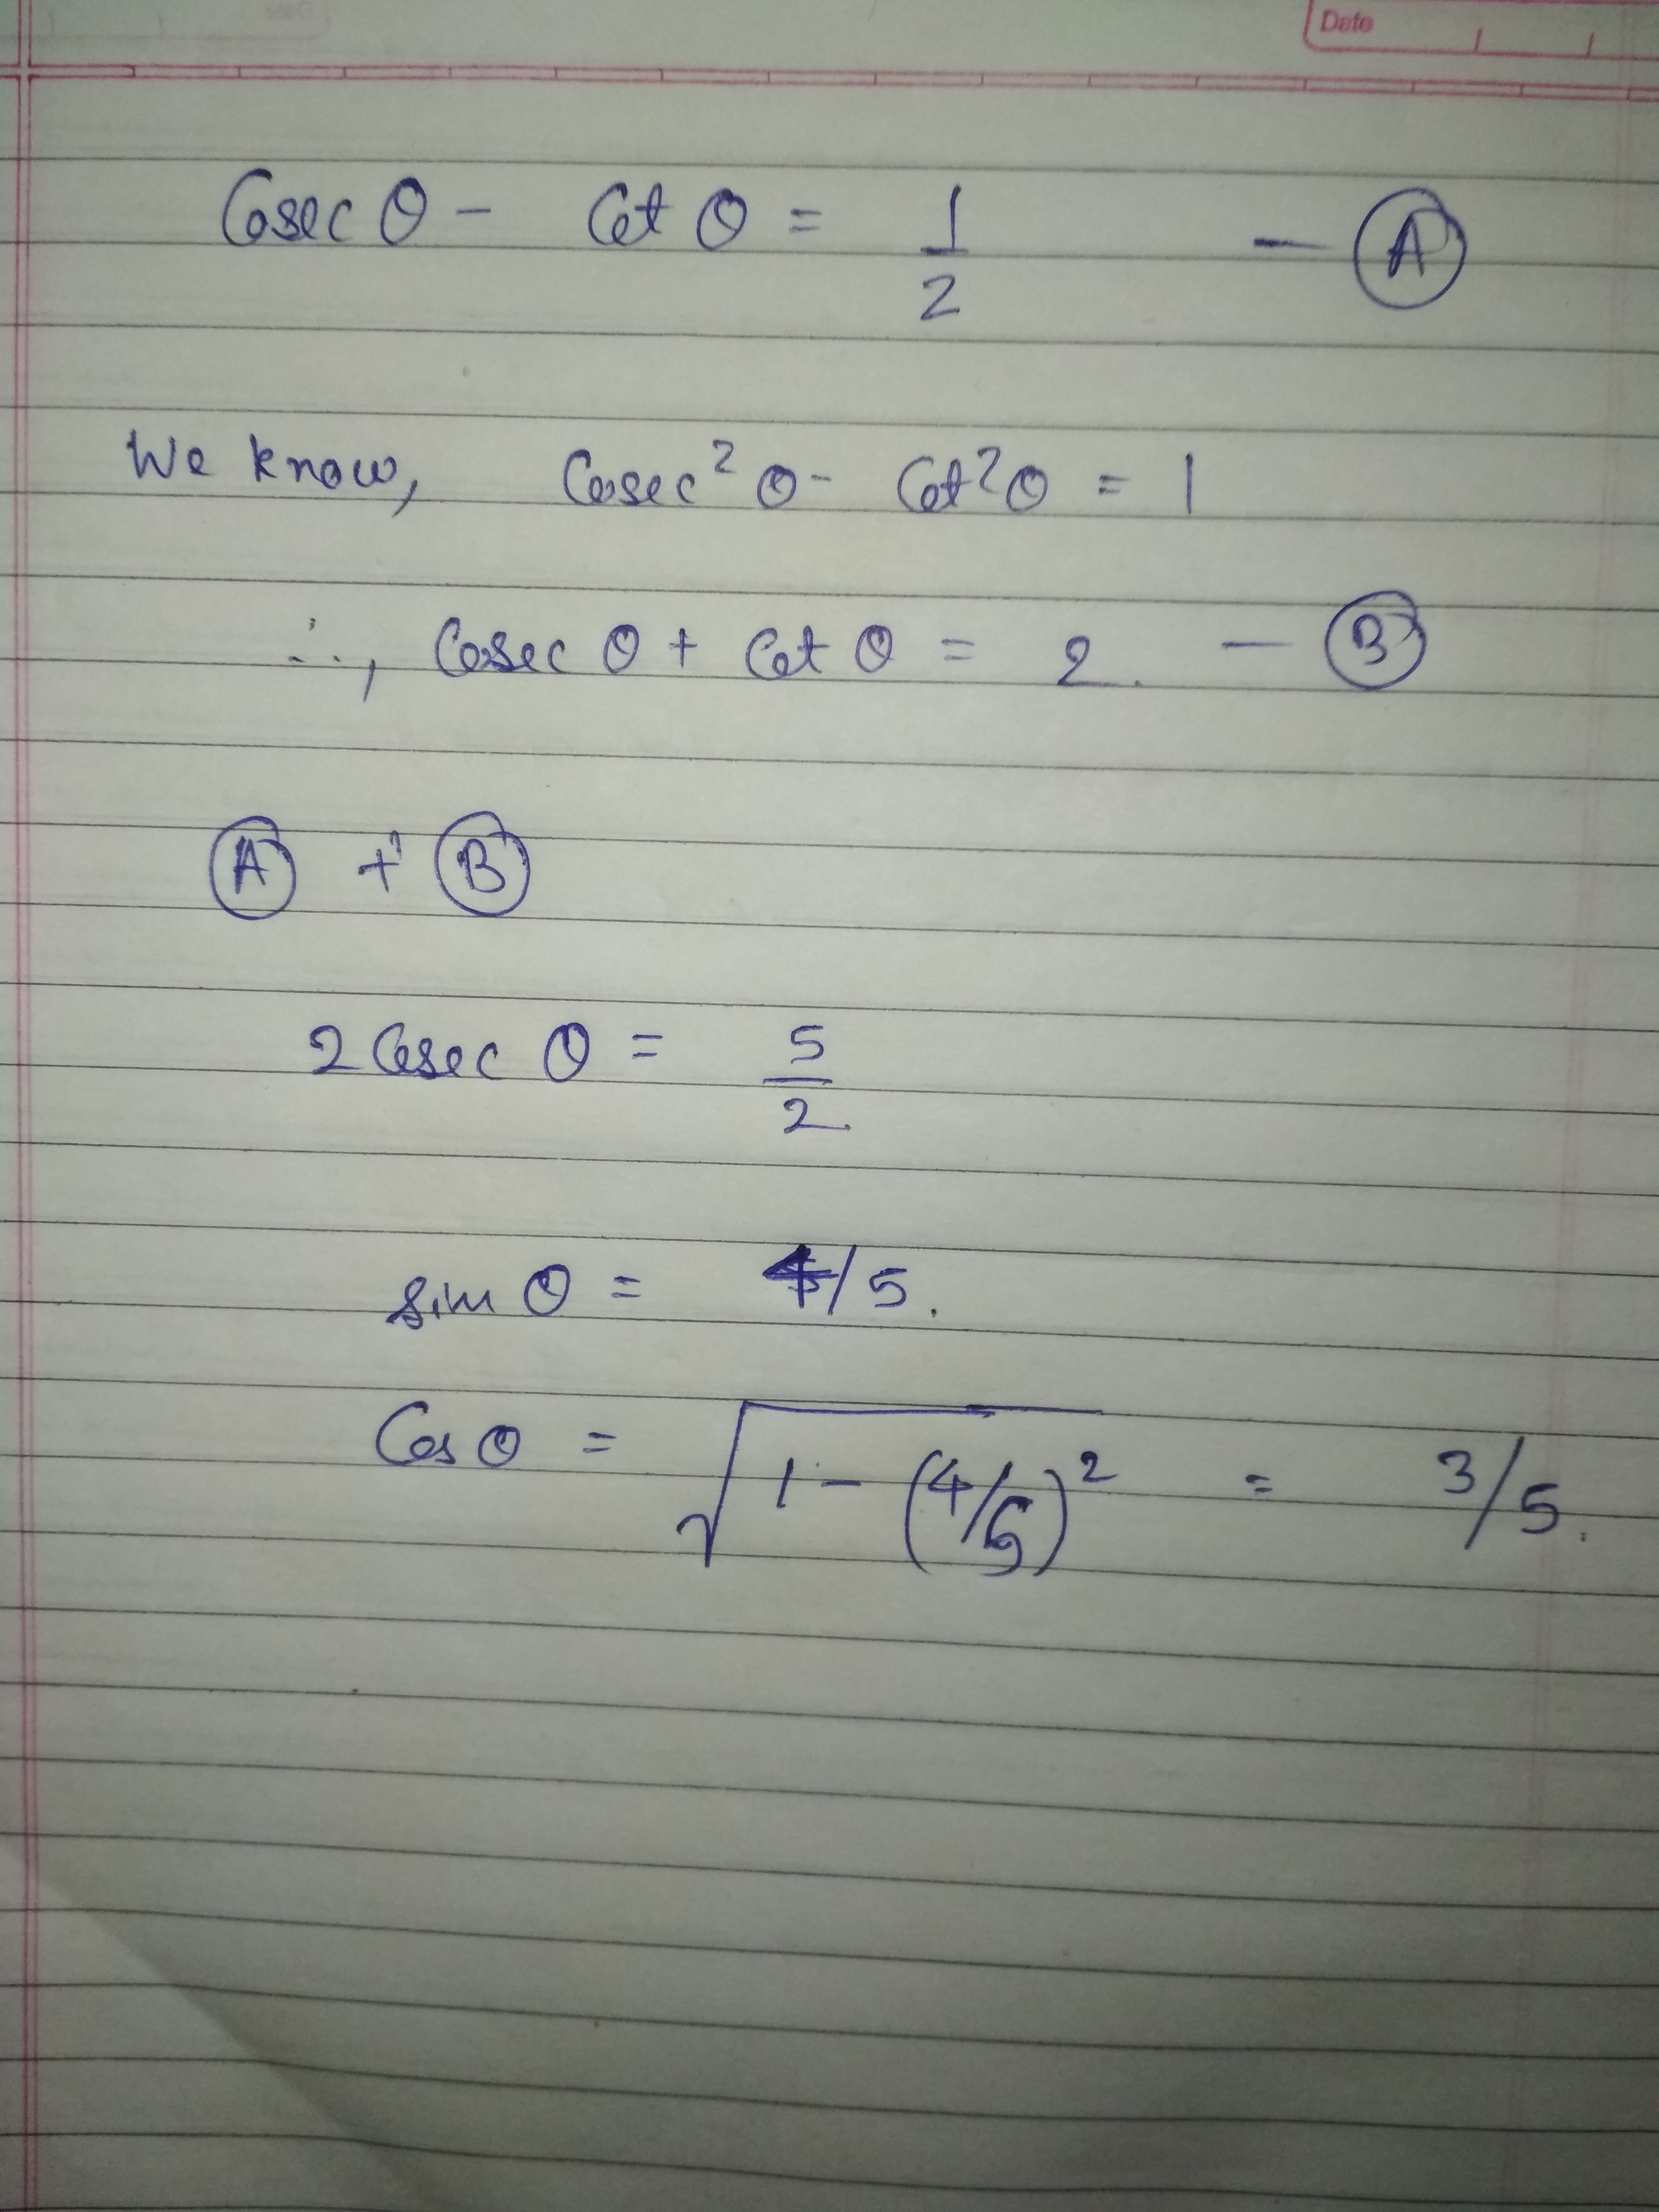 Date
Cosec θ - Cot θ = 1/2 - (A)
We know, Cosec² θ - Cot² θ = 1
∴, Cosec θ + Cot θ = 2. - (B)
(A) + (B)
2 Cosec θ = 5/2.
sin θ = 4/5.
Cos θ = √(1 - (4/5)²) = 3/5.